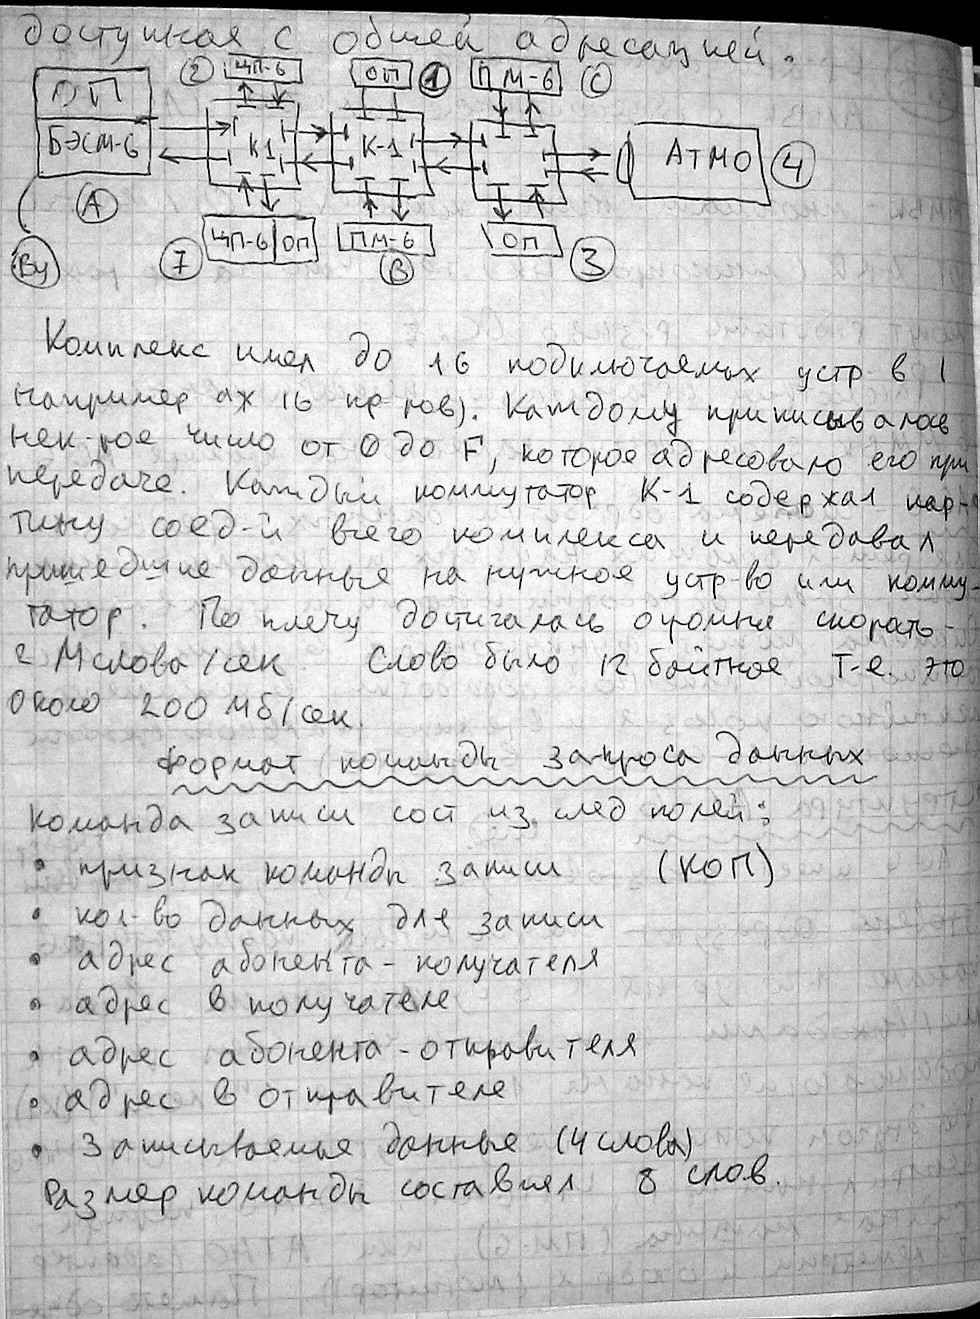 доступная с общей адресацией.
2 ЦП-6 ОП 1 ПМ-6 C
ОП
БЭСМ-6 К1 К-1 АТМО 4
A
ВУ 7 ЦП-6 ОП ПМ-6 B ОП 3
Комплекс имел до 16 подключаемых устр в 1
например ах 16 пр-ров). Каждому приписывалось
нек-рое число от 0 до F, которое адресовало его при
передаче. Каждый коммутатор К-1 содержал кар-
тину соед-й всего комплекса и передавал
пришедшие данные на нужное устр-во или комму-
татор. По плечу достигалась огромня скорать-
2 Мслова/сек. Слово было 12 байтное т-е это
около 200 Мб/сек.
Формат команды запроса данных
Команда записи сост из след полей:
• признак команды записи (КОП)
• кол-во данных для записи
• адрес абонента-получателя
• адрес в получателе
• адрес абонента-отправителя
• адрес в отправителе
• Записываемые данные (4 слова)
Размер команды составлял 8 слов.